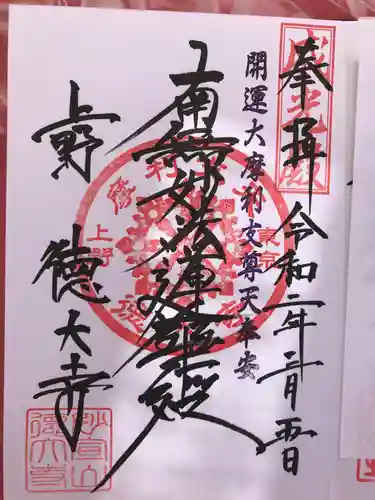 奉拝 令和二年二月五日
開運大摩利支尊天奉安
南無妙法蓮華経
上野 徳大寺
摩利支天
東京
上野
妙宣山徳大寺